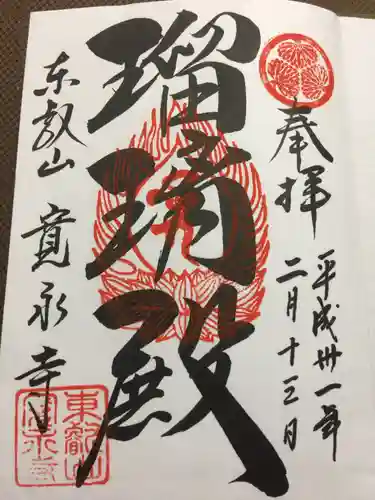 奉拝
平成卅一年
二月十三日
瑠璃殿
東叡山
寛永寺
東叡山
寛永寺